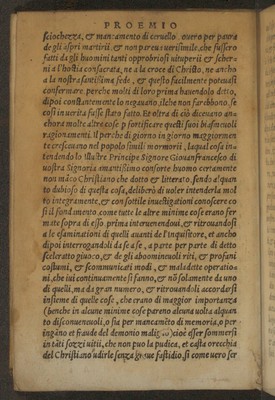 PROEMIO
sciochezza, et mancamento di ceruello. ouero per paura
de gli aspri martirij. et non pareua uerisimile, che fussero
fatti da gli huomini tanti opprobriosi uituperij et scher-
ni a l'hostia consacrata, ne a la croce di Christo, ne ancho
a la nostra santissima fede, et questo facilmente poteuasi
confermare. perche molti di loro prima hauendolo detto,
dipoi constantemente lo negauano, ilche non farebbono. se
così in uerità fusse stato fatto. Et oltra di ciò diceuano an-
chora molte altre cose per fortificare questi suoi biasmeuoli
ragionamenti. Il perche di giorno in giorno maggiormen-
te cresceuano nel popolo simili mormorij, laqual cosa in-
tendendo lo Illustre Principe Signore Giouanfrancesco di
uostra Signoria amantissimo consorte huomo certamente
non màco Christiano che dotto et litterato, sendo alquan-
to dubioso di questa cosa, deliberò di uoler intenderla mol
to integramente, et con sottile inuestigationi conoscere co
sì il fundamento, come tutte le altre minime cose erano fer
mate sopra di esso. prima interuenendoui, et ritrouandosi
a le esaminationi di quelli auanti de l'Inquisitore, et ancho
dipoi interrogandoli da se a se, a parte per parte di detto
scelerato giuoco, et de gli abomineuoli riti, et profani
costumi, et scommunicati modi, et maladette operatio-
ni, che iui continuamente si fanno, et nõ solamente da uno
di quelli, ma da gran numero, et ritrouandoli accordarsi
insieme di quelle cose, che erano di maggior importanza
(benche in alcune minime cose pareno alcuna uolta alquan
to disconueneuoli, o sia per mancamẽto di memoria, o per
inganno et fraude del demonio maligno) cioè d'esser sommersi
in tãti sozzi uitij, che non puo la pudica, et casta orecchia
del Christiano udirle senza graue fastidio, si come uero ser